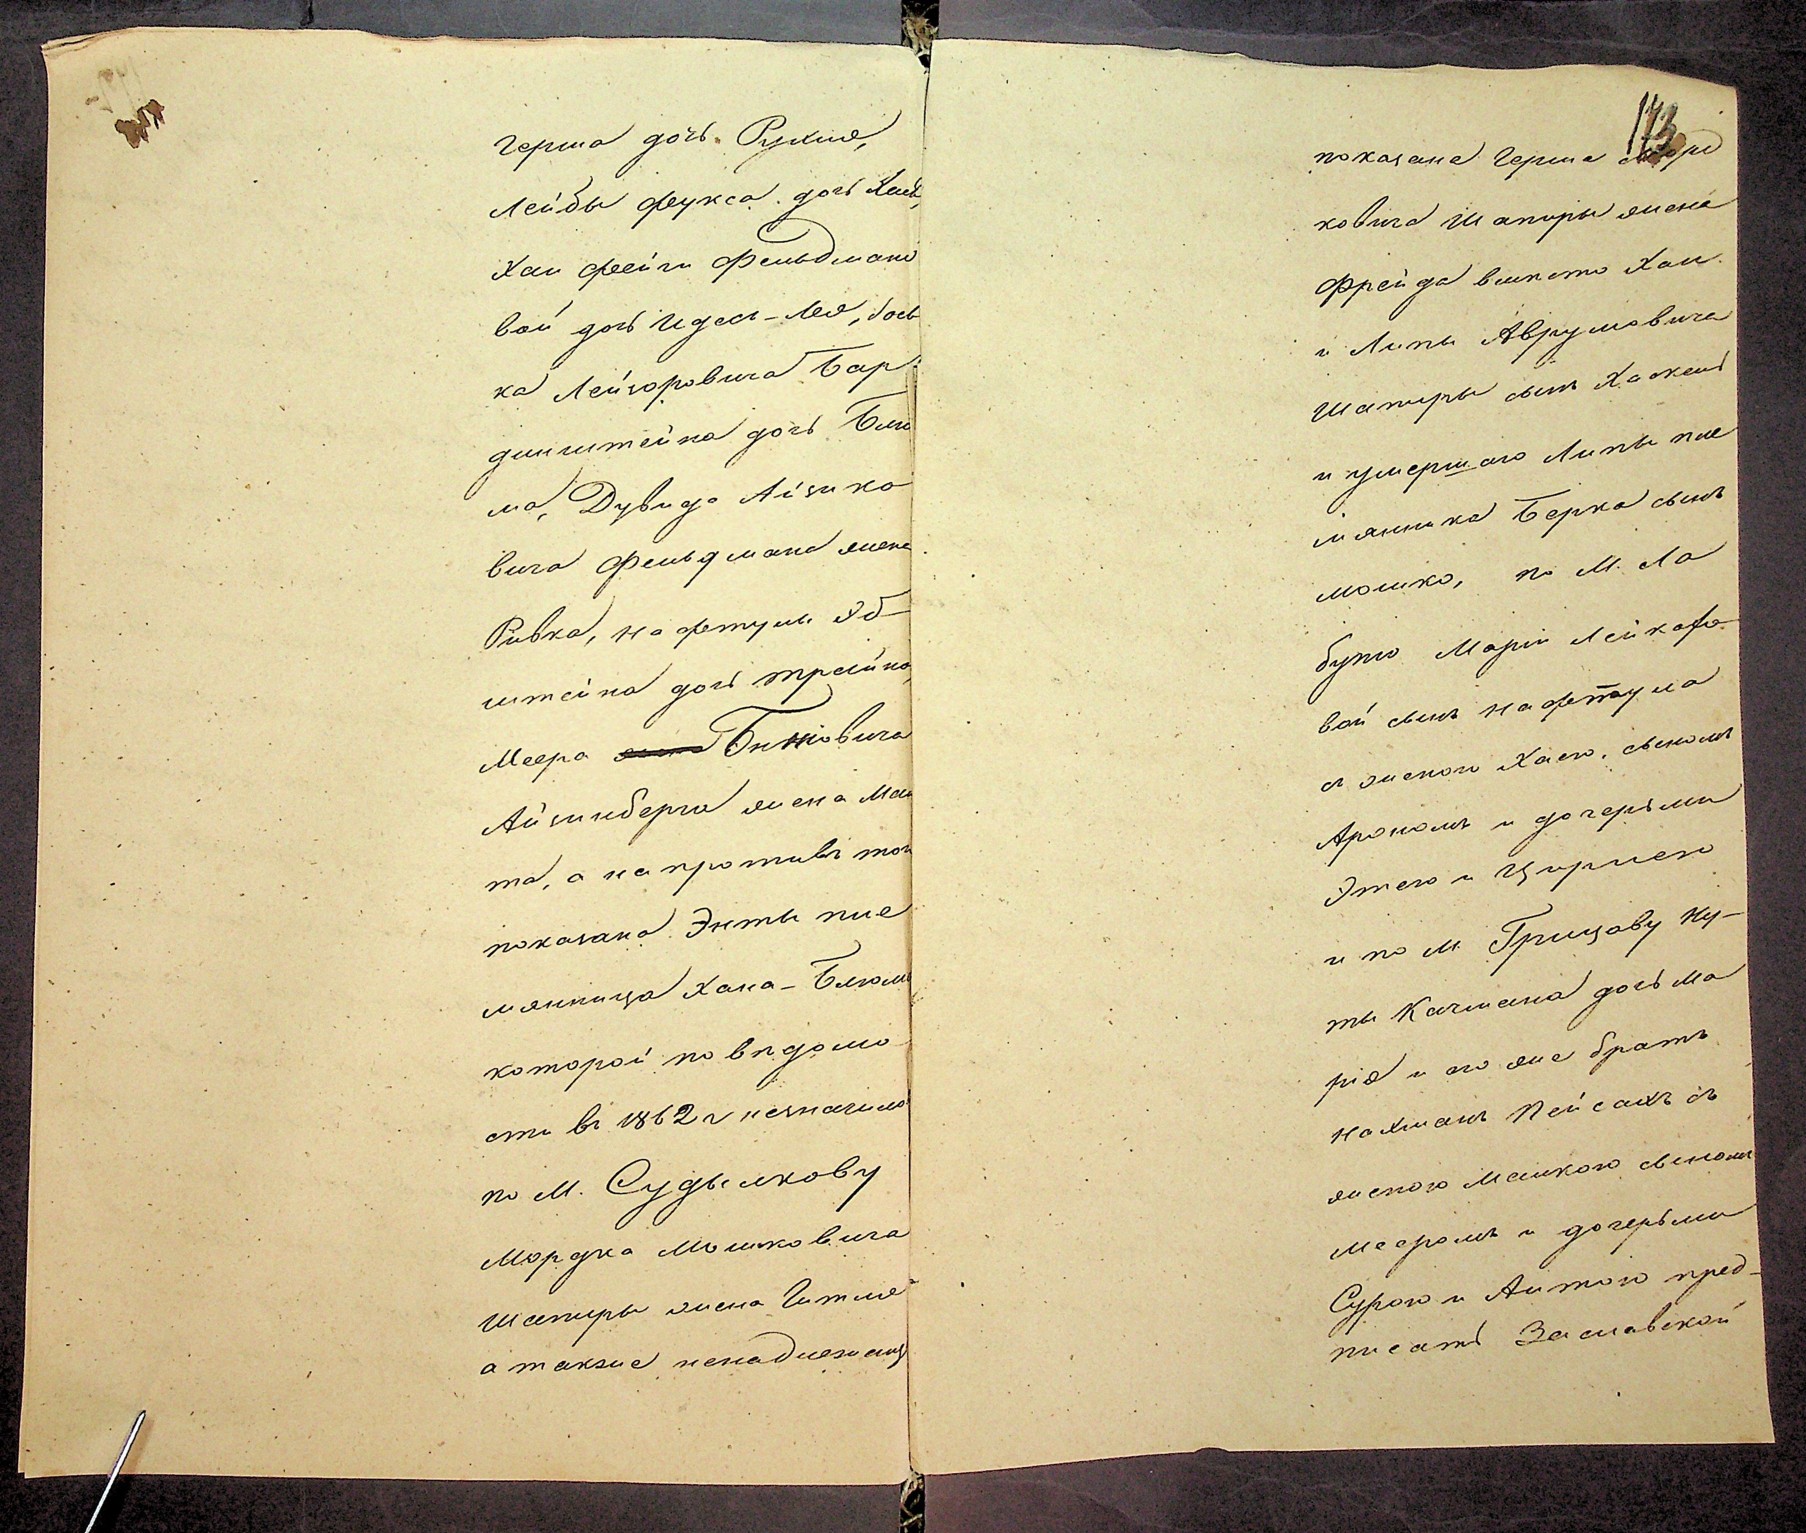 герша дочь Рухля,
Лейбы Фукса дочь Хая,
Хаи Фейги Фельдмано
вой дочь Идесь-Лея, Іось
ка Лейзоровича Бар
динштейна дочь Блю
ма, Дувида Айзико
вича Фельдмана жена
Ривка, Нафтулы Эб
штейна дочь Трейна,
Меера Беніовича
Айзинберга жена Мал
та, а напротивъ того
показана Энты пле
мянница Хана-Блюма
которой по вѣдомо
сти въ 1862 г незначило
по М. Судылкову
Мордка Мошковича
Шапиры жена Гитля
а также ненадлежащ
173
показана Герша Морд
ковича Шапиры жена
Фрейда вмѣсто Хаи
и Липы Аврумовича
Шапиры сынъ Хаскель
и умершаго Липы пле
мянника Берка сынъ
Мошко, по М. Ла
буню Маріи Лейкахо
вой сынъ Нафтула
съ женою Хаею, сыномъ
Арономъ и дочерьми
Этею и Цирлею
и по М. Грицову Ну-
ты Качмана дочь Ма
рія и его же братъ
Нахманъ Пейсахъ съ
женою Малкою сыномъ
Мееромъ и дочерьми
Сурою и Аитою пред-
писать Заславской